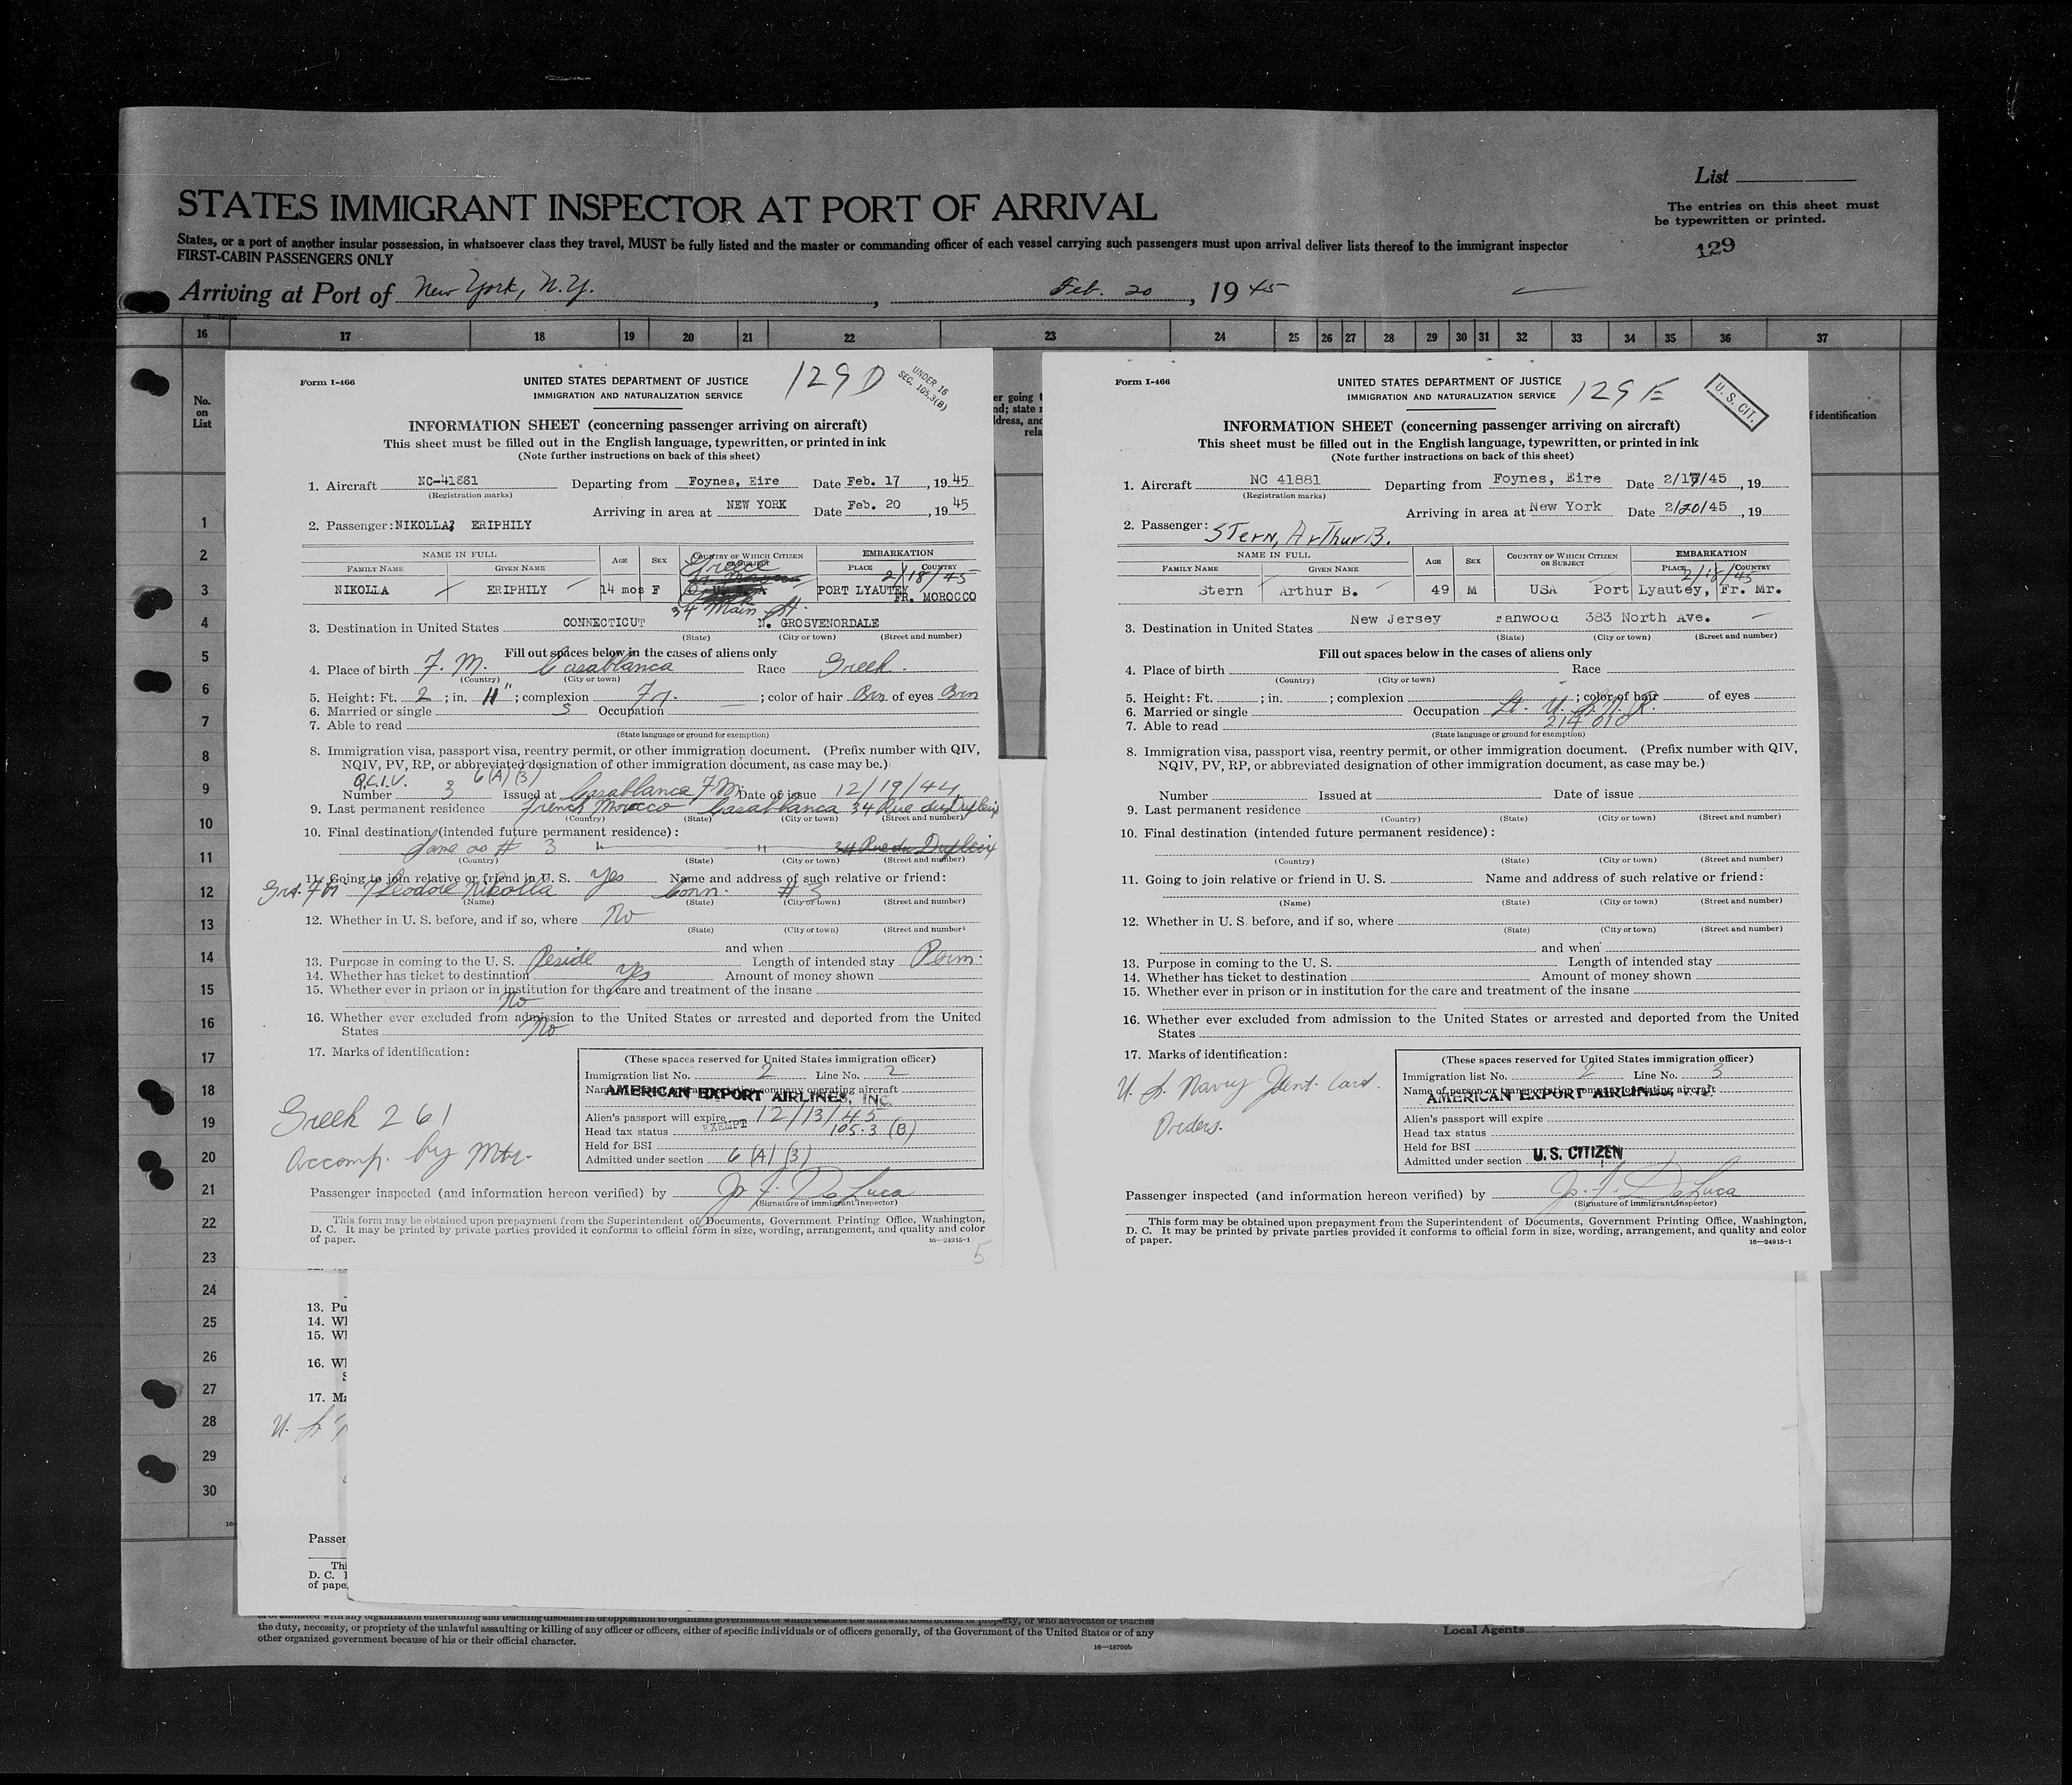 List
STATES IMMIGRANT INSPECTOR AT PORT OF ARRIVAL
The entries on this sheet must
be typewritten or printed.
States, or a port of another insular possession, in whatsoever class they travel, MUST be fully listed and the master or commanding officer of each vessel carrying such passengers must upon arrival deliver lists thereof to the immigrant inspector
FIRST-CABIN PASSENGERS ONLY
129
Arriving at Port of New York, N.Y. , Feb. 20 , 19 45
16 17 18 19 20 21 22 23 24 25 26 27 28 29 30 31 32 33 34 35 36 37
No.
on
List
f identification
1
2
3
4
5
6
7
8
9
10
11
12
13
14
15
16
17
18
19
20
21
22
23
24
25
26
27
28
29
30
Form I-466
UNITED STATES DEPARTMENT OF JUSTICE
IMMIGRATION AND NATURALIZATION SERVICE
129 D
UNDER 16
SEC. 105.3(B)
INFORMATION SHEET (concerning passenger arriving on aircraft)
This sheet must be filled out in the English language, typewritten, or printed in ink
(Note further instructions on back of this sheet)
1. Aircraft NC-41881 Departing from Foynes, Eire Date Feb. 17 , 19 45
(Registration marks)
Arriving in area at NEW YORK Date Feb. 20 , 19 45
2. Passenger: NIKOLLA, ERIPHILY
NAME IN FULL AGE SEX COUNTRY OF WHICH CITIZEN OR SUBJECT EMBARKATION
FAMILY NAME GIVEN NAME Greece PLACE COUNTRY
2/18/45
NIKOLLA ERIPHILY 14 mos F PORT LYAUTEY FR. MOROCCO
34 Main St.
3. Destination in United States CONNECTICUT N. GROSVENORDALE
(State) (City or town) (Street and number)
Fill out spaces below in the cases of aliens only
4. Place of birth F. M. Casablanca Race Greek.
(Country) (City or town)
5. Height: Ft. 2 ; in. 11" ; complexion ; color of hair Brn of eyes Brn
6. Married or single S Occupation
7. Able to read
(State language or ground for exemption)
8. Immigration visa, passport visa, reentry permit, or other immigration document. (Prefix number with QIV,
NQIV, PV, RP, or abbreviated designation of other immigration document, as case may be.)
6(A)(3)
Number 3 Issued at Casablanca F.M. Date of issue 12/19/44
9. Last permanent residence French Morocco Casablanca 34 Rue du Dupleix
(Country) (State) (City or town) (Street and number)
10. Final destination (intended future permanent residence):
Same as # 3 " " 34 Rue du Dupleix
(Country) (State) (City or town) (Street and number)
11. Going to join relative or friend in U. S. Yes Name and address of such relative or friend:
Theodore Nikolla Conn. # 3
(Name) (State) (City or town) (Street and number)
12. Whether in U. S. before, and if so, where No
(State) (City or town) (Street and number)
and when
13. Purpose in coming to the U. S. Reside Length of intended stay Perm.
14. Whether has ticket to destination Yes Amount of money shown
15. Whether ever in prison or in institution for the care and treatment of the insane
No
16. Whether ever excluded from admission to the United States or arrested and deported from the United
States No
17. Marks of identification:
Greek 261
Accomp. by Mtr.
(These spaces reserved for United States immigration officer)
Immigration list No. 2 Line No. 2
Name of person or transportation company operating aircraft
AMERICAN EXPORT AIRLINES, INC.
Alien's passport will expire 12/13/45
Head tax status EXEMPT 105.3 (B)
Held for BSI
Admitted under section 6 (A) (3)
Passenger inspected (and information hereon verified) by Jo. F. DeLuca
(Signature of immigrant inspector)
This form may be obtained upon prepayment from the Superintendent of Documents, Government Printing Office, Washington,
D. C. It may be printed by private parties provided it conforms to official form in size, wording, arrangement, and quality and color
of paper.
16—24915-1
5
Form I-466
UNITED STATES DEPARTMENT OF JUSTICE
IMMIGRATION AND NATURALIZATION SERVICE
129 E
U. S. CIT.
INFORMATION SHEET (concerning passenger arriving on aircraft)
This sheet must be filled out in the English language, typewritten, or printed in ink
(Note further instructions on back of this sheet)
1. Aircraft NC 41881 Departing from Foynes, Eire Date 2/17/45 , 19
(Registration marks)
Arriving in area at New York Date 2/20/45 , 19
2. Passenger: Stern, Arthur B.
NAME IN FULL AGE SEX COUNTRY OF WHICH CITIZEN OR SUBJECT EMBARKATION
FAMILY NAME GIVEN NAME PLACE COUNTRY
2/18/45
Stern Arthur B. 49 M USA Port Lyautey, Fr. Mr.
3. Destination in United States New Jersey ranwood 383 North Ave.
(State) (City or town) (Street and number)
Fill out spaces below in the cases of aliens only
4. Place of birth Race
(Country) (City or town)
5. Height: Ft. ; in. ; complexion ; color of hair of eyes
6. Married or single Occupation Lt. U.S.N.R.
7. Able to read 214 010
(State language or ground for exemption)
8. Immigration visa, passport visa, reentry permit, or other immigration document. (Prefix number with QIV,
NQIV, PV, RP, or abbreviated designation of other immigration document, as case may be.)
Number Issued at Date of issue
9. Last permanent residence
(Country) (State) (City or town) (Street and number)
10. Final destination (intended future permanent residence):
(Country) (State) (City or town) (Street and number)
11. Going to join relative or friend in U. S. Name and address of such relative or friend:
(Name) (State) (City or town) (Street and number)
12. Whether in U. S. before, and if so, where
(State) (City or town) (Street and number)
and when
13. Purpose in coming to the U. S. Length of intended stay
14. Whether has ticket to destination Amount of money shown
15. Whether ever in prison or in institution for the care and treatment of the insane
16. Whether ever excluded from admission to the United States or arrested and deported from the United
States
17. Marks of identification:
U. S. Navy Ident. Card.
Orders.
(These spaces reserved for United States immigration officer)
Immigration list No. 2 Line No. 3
Name of person or transportation company operating aircraft
AMERICAN EXPORT AIRLINES, INC.
Alien's passport will expire
Head tax status
Held for BSI
Admitted under section U. S. CITIZEN
Passenger inspected (and information hereon verified) by Jo. F. DeLuca
(Signature of immigrant inspector)
This form may be obtained upon prepayment from the Superintendent of Documents, Government Printing Office, Washington,
D. C. It may be printed by private parties provided it conforms to official form in size, wording, arrangement, and quality and color
of paper.
16—24915-1
13. Pu
14. W
15. W
16. W
17. Ma
Passer
Thi
D. C.
of pape
the duty, necessity, or propriety of the unlawful assaulting or killing of any officer or officers, either of specific individuals or of officers generally, of the Government of the United States or of any
other organized government because of his or their official character.
16—18709b
Local Agents